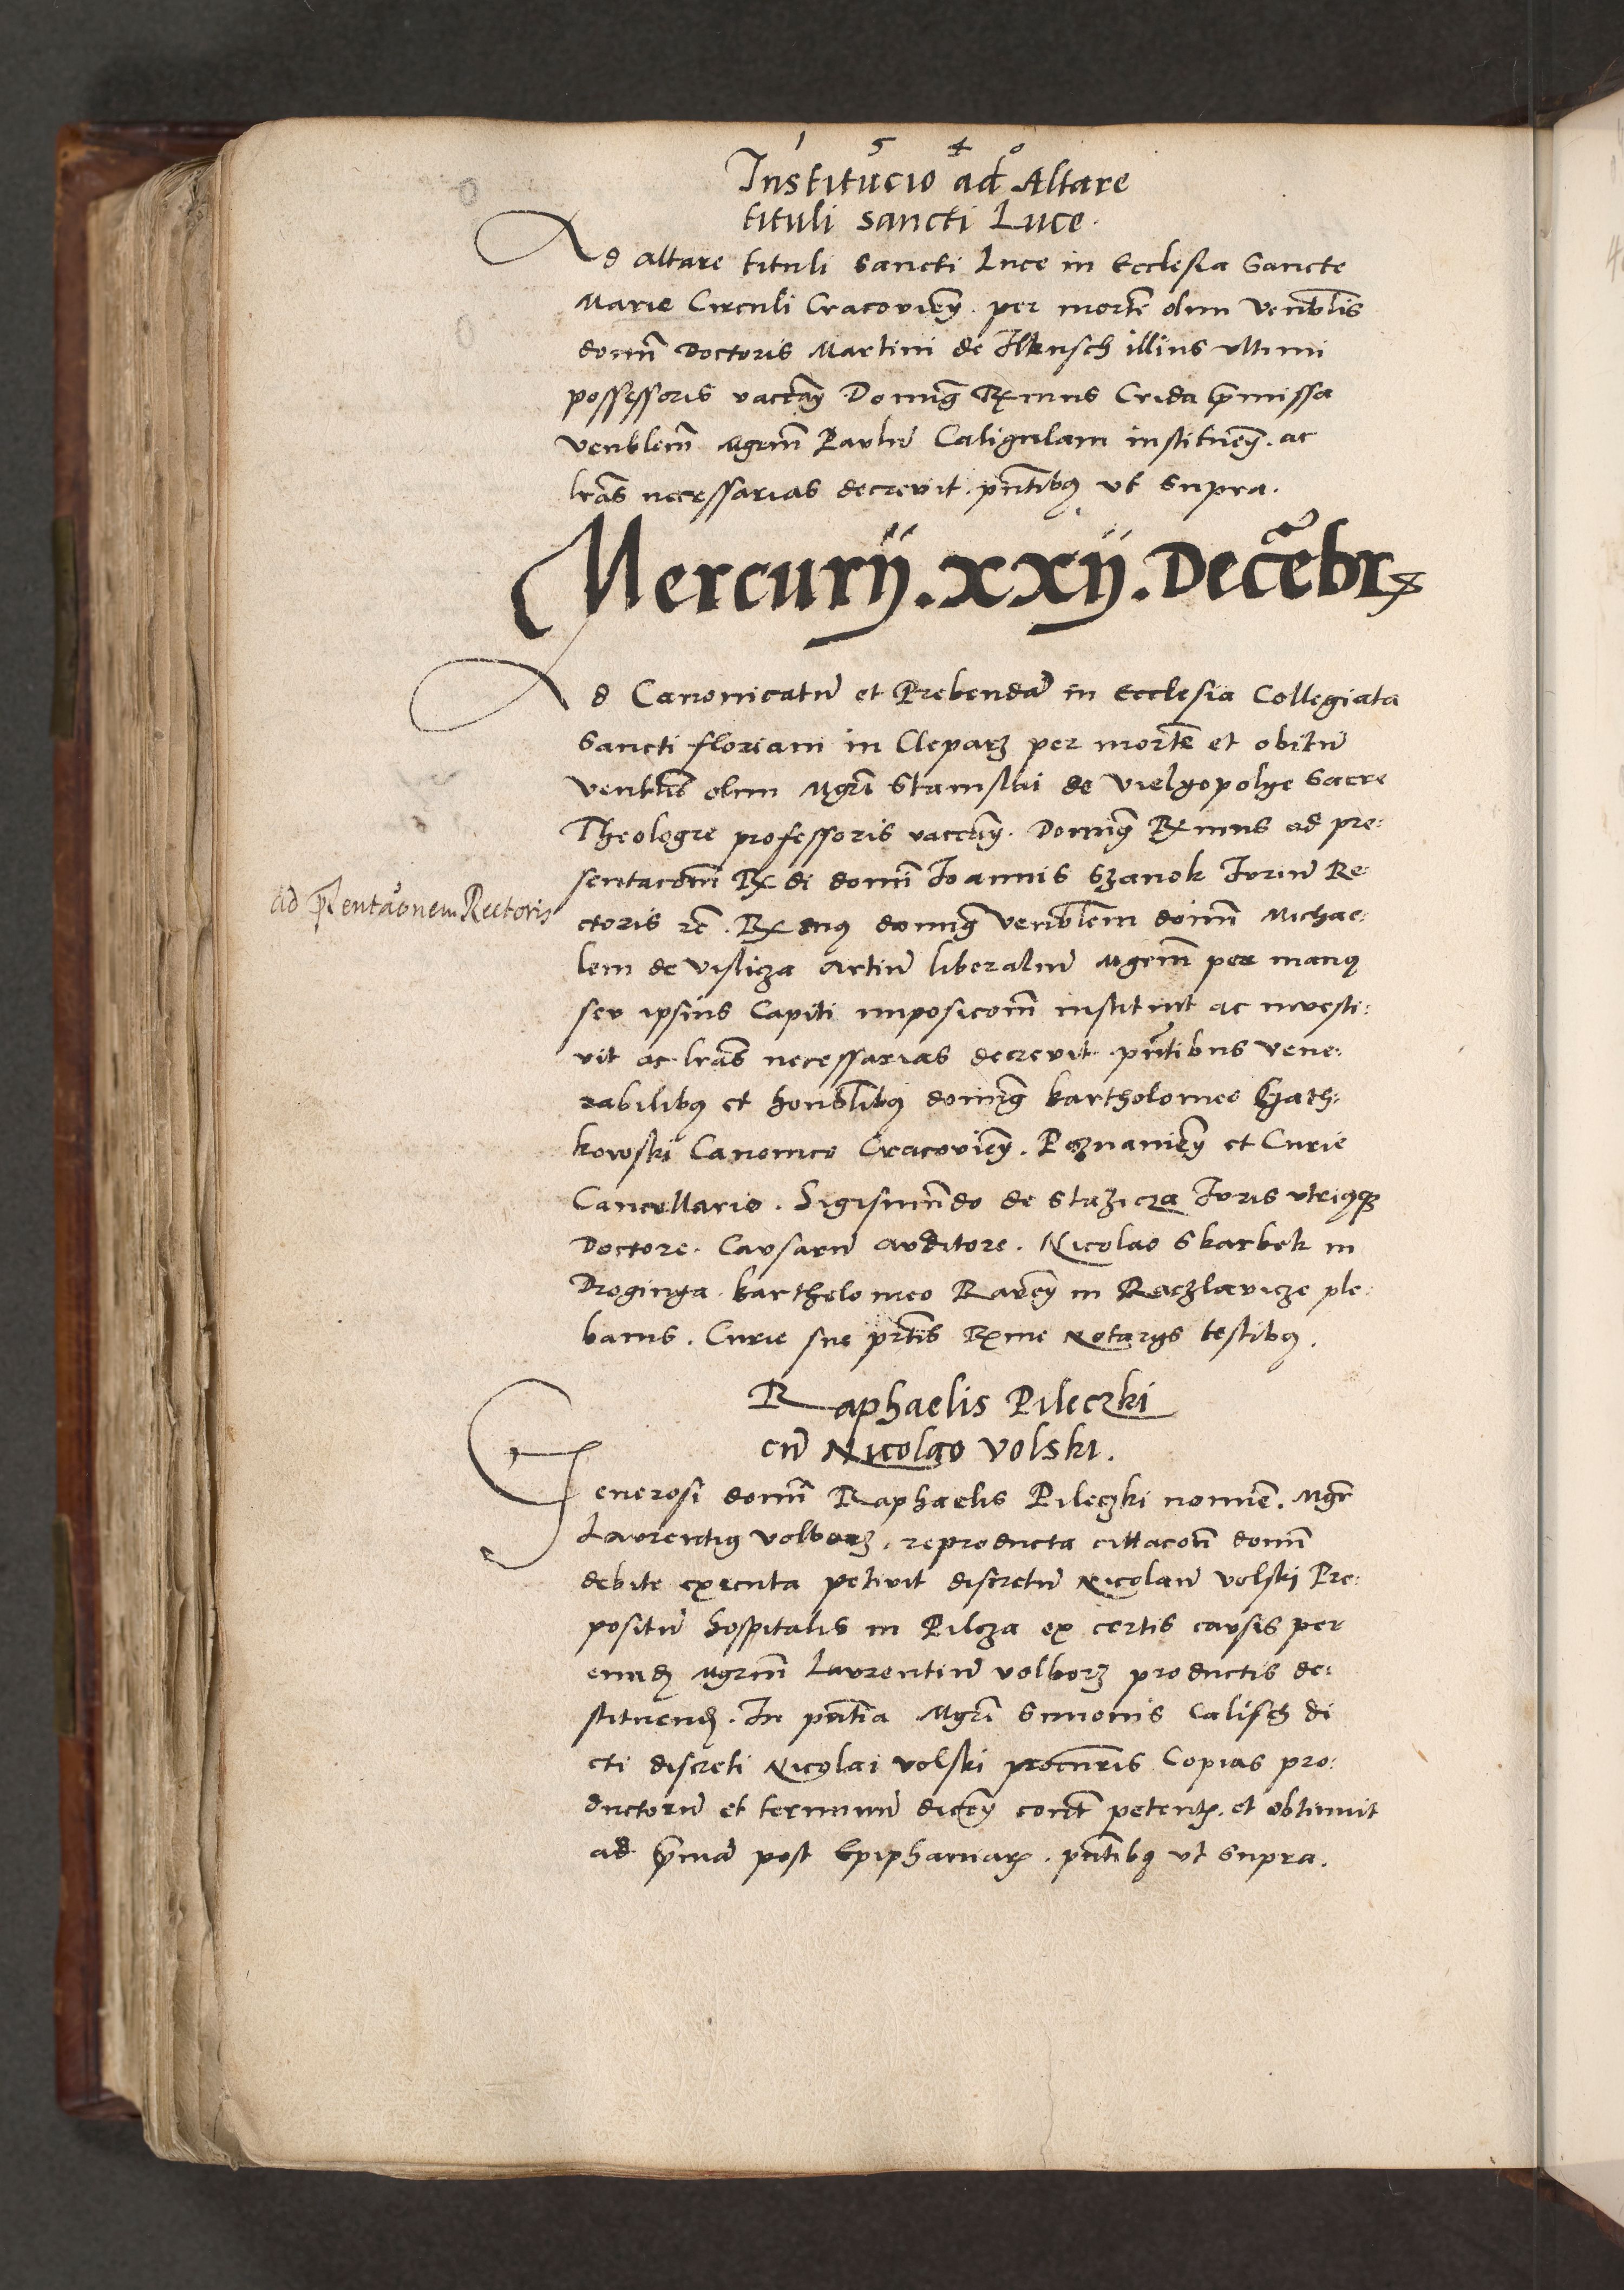 1 5 4 0
Institucio ad Altare
tituli sancti Luce.
Ad altare tituli sancti Luce in Ecclesia Sancte
Marie Circuli Cracovieñ. per mortē olim Venblis
domī Doctoris Martini de Ilkusch illius ultimi
possessoris vacań Domīg Rxmus Crida p̄missa
venblem̄ Mgrm̄ Paulū Caligulam instituēn. ac
lrās necessarias decrevit. pn̄tibus ut supra.
Mercurij. xxij. Decēbr
Ad Canonicatū et Prebendā in Ecclesia Collegiata
Sancti floriani in Cleparz per mortē et obitū
venblis olim Mgrī Stanislai de Vielgopolye Sacre
Theologie professoris vacań. Domīg Rxmus ad pre:
sentacom̄ Rx di domī Joannis Szanok Iuriū Re:
ctoris rc̄. Rx mus domīg venblem domī Michae:
lem de Visliza Artiū liberaliū Mgrm̄ per manus
seu ipsius Capiti imposicom̄ instituit ac investi:
vit ac lrās necessarias decrevit. pn̄tibus vene:
rabilibus et honblibus domīg bartholomeo
kowski Canonico Cracovieñ. Poznanieñ et Curie
Cancellario. Sigismundo de Stazicza Iuris utriusque
Doctore. Causarū auditore. Nicolao Skarbek in
Droginya. bartholomeo in Raczlavicze ple:
banis. Curie sue prtis Rxme Notarijs testibus.
ad p̄sentacionem Rectoris
Raphaelis Pileczki
cū Nicolao Volski.
Generosi domī Raphaelis Pileczki nomiē. Mgr
Laurentius volborz. reproducta cittacoñ domī
debite executa petivit discretū Nicolaū volski Pre:
positū hospitalis in Pilcza ex certis causis per
eund Mgrm̄ Laurentiū volborz productis de:
stituend. In pn̄tia Mgrī Simonis Calisch di
cti discreti Nicolai volski procuris Copias pro:
ductorū et terminū dicēn cont petent. et obtinuit
ad p̄mā post Epiphaniar. pn̄tibus ut supra.